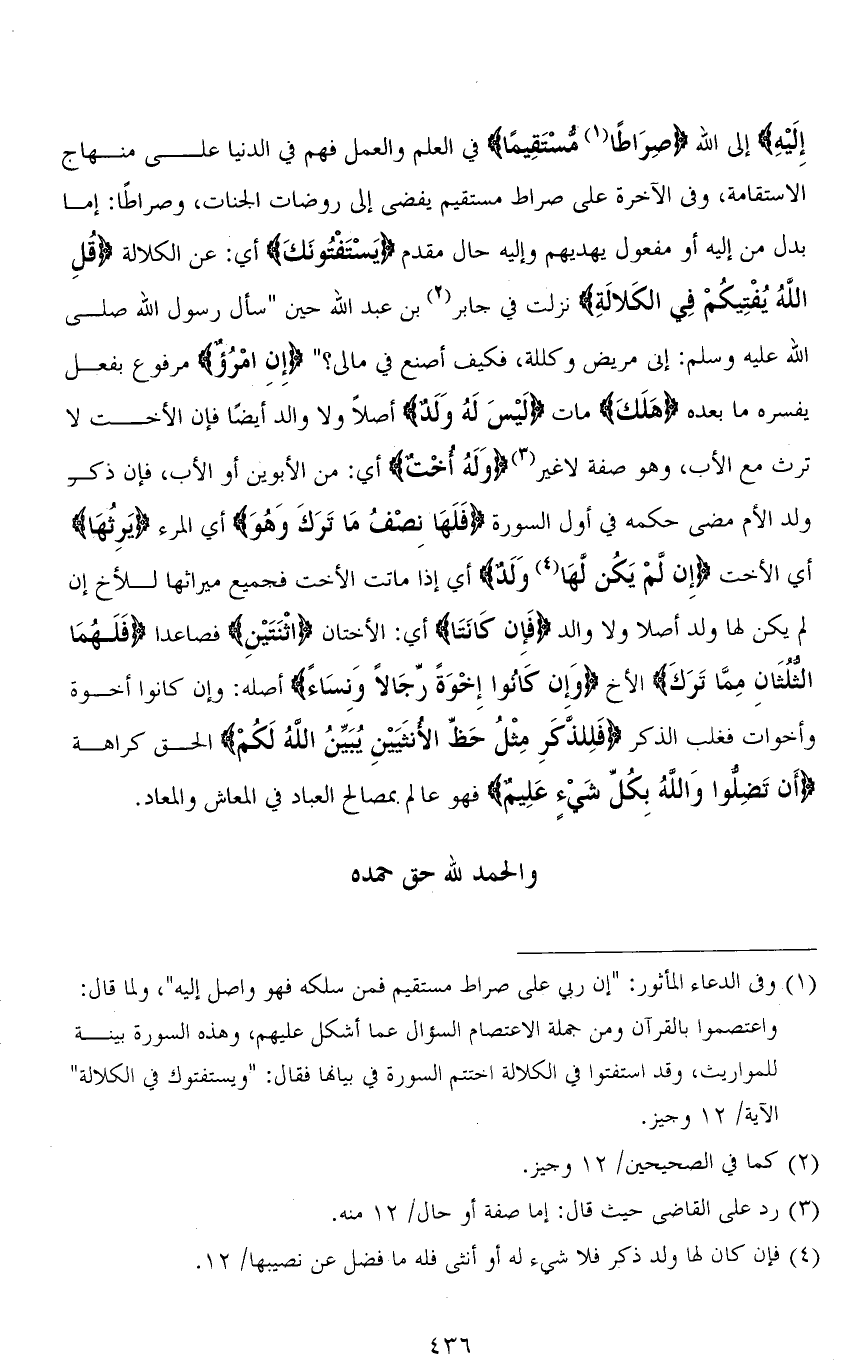 إِلَيْهِ﴾ إلى الله ﴿صِرَاطًا(١) مُّسْتَقِيمًا﴾ في العلم والعمل فهم في الدنيا علـــى منـــهاج
الاستقامة، وفى الآخرة على صراط مستقيم يفضى إلى روضات الجنات، وصراطًا: إمـا
بدل من إليه أو مفعول يهديهم وإليه حال مقدم ﴿يَسْتَفْتُونَكَ﴾ أي: عن الكلالة ﴿قُلِ
اللَّهُ يُفْتِيكُمْ فِي الكَلالَةِ﴾ نزلت في جابر(٢) بن عبد الله حين "سأل رسول الله صلـــى
الله عليه وسلم: إنى مريض وكللة، فكيف أصنع في مالى؟" ﴿إِنِ امْرُؤٌ﴾ مرفوع بفعـــل
يفسره ما بعده ﴿هَلَكَ﴾ مات ﴿لَيْسَ لَهُ وَلَدٌ﴾ أصلاً ولا والد أيضًا فإن الأخـــت لا
ترث مع الأب، وهو صفة لاغير(٣)﴿وَلَهُ أُخْتٌ﴾ أي: من الأبوين أو الأب، فإن ذكـر
ولد الأم مضى حكمه في أول السورة ﴿فَلَهَا نِصْفُ مَا تَرَكَ وَهُوَ﴾ أي المرء ﴿يَرِثُهَا﴾
أي الأخت ﴿إِن لَّمْ يَكُن لَّهَا(٤) وَلَدٌ﴾ أي إذا ماتت الأخت فجميع ميراثها لـــلأخ إن
لم يكن لها ولد أصلا ولا والد ﴿فَإِن كَانَتَا﴾ أي: الأختان ﴿اثْنَتَيْنِ﴾ فصاعدا ﴿فَلَـهُمَا
الثُّلُثَانِ مِمَّا تَرَكَ﴾ الأخ ﴿وَإِن كَانُوا إِخْوَةً رِّجَالاً وَنِسَاءً﴾ أصله: وإن كانوا أخـوة
وأخوات فغلب الذكر ﴿فَلِلذَّكَرِ مِثْلُ حَظِّ الأُنثَيَيْنِ يُبَيِّنُ اللَّهُ لَكُمْ﴾ الحـــق كراهـــة
﴿أَن تَضِلُّوا وَاللَّهُ بِكُلِّ شَيْءٍ عَلِيمٌ﴾ فهو عالم بمصالح العباد في المعاش والمعاد.
والحمد لله حق حمده
(١) وفى الدعاء المأثور: "إن ربي على صراط مستقيم فمن سلكه فهو واصل إليه"، ولما قال:
واعتصموا بالقرآن ومن جملة الاعتصام السؤال عما أشكل عليهم، وهذه السورة بينـــة
للمواريث، وقد استفتوا في الكلالة اختتم السورة في بيانها فقال: "ويستفتوك في الكلالة"
الآية/ ١٢ وجيز.
(٢) كما في الصحيحين/ ١٢ وجيز.
(٣) رد على القاضى حيث قال: إما صفة أو حال/ ١٢ منه.
(٤) فإن كان لها ولد ذكر فلا شيء له أو أنثى فله ما فضل عن نصيبها/ ١٢.
٤٣٦